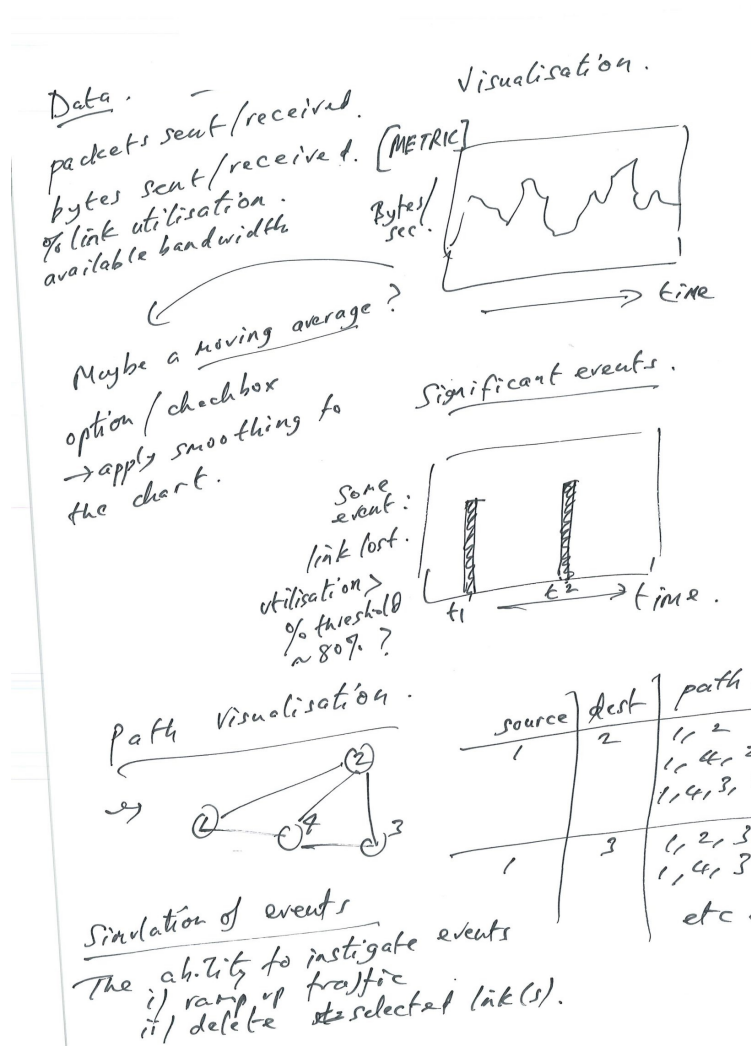 Data. -
packets sent/received.
bytes sent/received.
% link utilisation.
available bandwidth
Maybe a moving average?
option / checkbox
→ apply smoothing to
the chart.
Visualisation.
[METRIC]
Bytes/
sec.
→ time
Significant events.
Some
event:
link lost.
utilisation >
% threshold
~ 80% ?
t1
t2
→ time.
Path visualisation.
1
2
4
3
source | dest | path
1 | 2 | 1, 2
1, 4, 2
1, 4, 3,
1 | 3 | 1, 2, 3
1, 4, 3
etc.
Simulation of events
The ability to instigate events
i) ramp up traffic
ii) delete selected link(s).